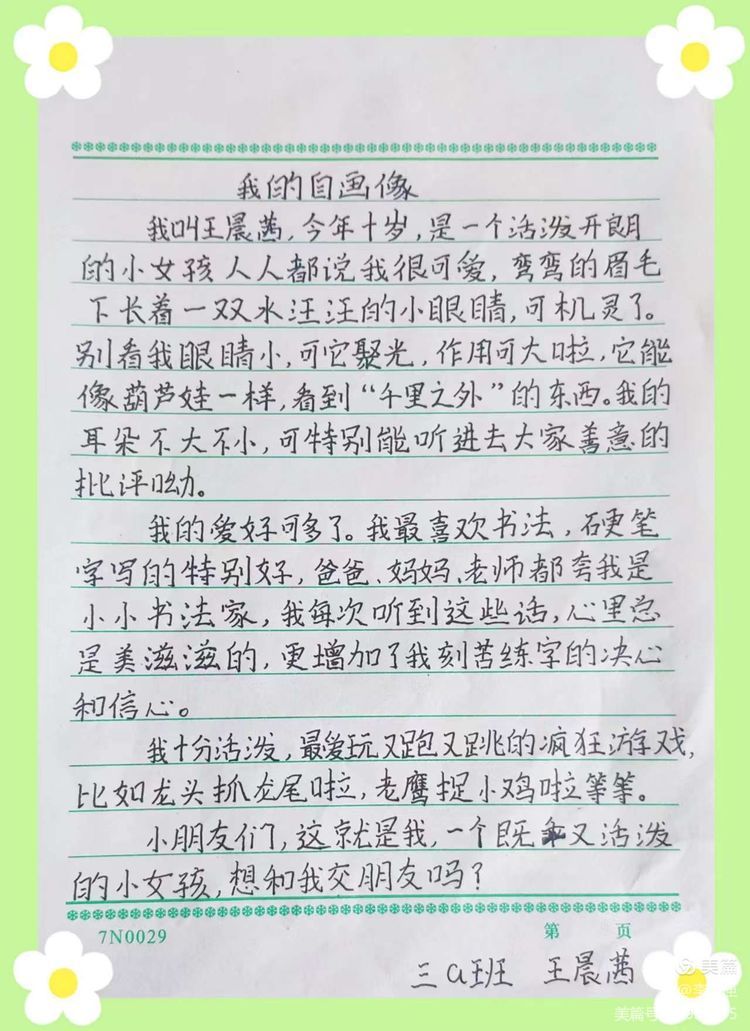 我的自画像
我叫王晨茜,今年十岁,是一个活泼开朗
的小女孩人人都说我很可爱,弯弯的眉毛
下长着一双水汪汪的小眼睛,可机灵了。
别看我眼睛小,可它聚光,作用可大啦,它能
像葫芦娃一样,看到“千里之外”的东西。我的
耳朵不大不小,可特别能听进去大家善意的
批评呦。
我的爱好可多了。我最喜欢书法,硬笔
字写的特别好,爸爸、妈妈、老师都夸我是
小小书法家,我每次听到这些话,心里总
是美滋滋的,更增加了我刻苦练字的决心
和信心。
我十分活泼,最爱玩又跑又跳的疯狂游戏,
比如龙头抓龙尾啦,老鹰捉小鸡啦等等。
小朋友们,这就是我,一个既又活泼
的小女孩,想和我交朋友吗?
7N0029 第 页
三a班 王晨茜
美篇
美篇号